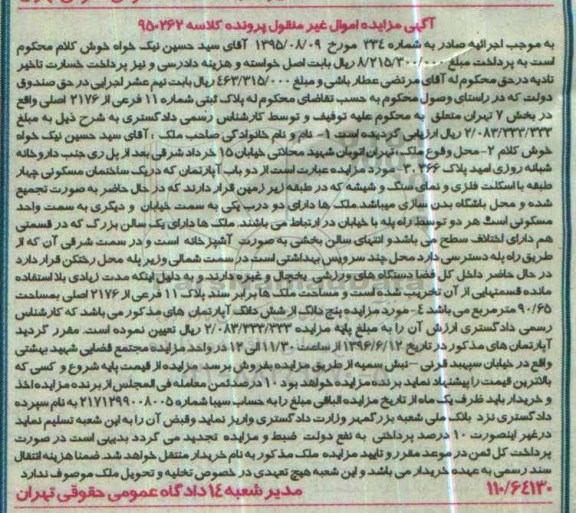 آگهی مزایده اموال غیر منقول پرونده کلاسه ۹۵۰۲۶۲
به موجب اجرائیه صادر به شماره ۲۳۴ مورخ ۱۳۹۵/۰۸/۰۹ آقای سید حسین نیک خواه خوش کلام محکوم
است به پرداخت مبلغ ۸/۲۱۵/۳۰۰/۰۰۰ ریال بابت اصل خواسته و هزینه دادرسی و نیز پرداخت خسارت تاخیر
تادیه در حق محکوم له آقای مرتضی عطار باشی و مبلغ ۴۶۳/۳۱۵/۰۰۰ ریال بابت نیم عشر اجرایی در حق صندوق
دولت که در راستای وصول محکوم به حسب تقاضای محکوم له پلاک ثبتی شماره ۱۱ فرعی از ۲۱۷۶ اصلی واقع
در بخش ۷ تهران متعلق به محکوم علیه توقیف و توسط کارشناس رسمی دادگستری به شرح ذیل به مبلغ
۲/۰۸۳/۳۳۳/۳۳۳ ریال ارزیابی گردیده است ۱- نام و نام خانوادگی صاحب ملک : آقای سید حسین نیک خواه
خوش کلام ۲-محل وقوع ملک: تهران اتوبان شهید محلاتی خیابان ۱۵ خرداد شرقی بعد از پل ری جنب داروخانه
شبانه روزی امید پلاک ۳۶۶ ۳- مورد مزایده عبارت است از دو باب آپارتمان که در یک ساختمان مسکونی چهار
طبقه با اسکلت فلزی و نمای سنگ و شیشه که در طبقه زیر زمین قرار دارند که در حال حاضر به صورت تجمیع
شده و محل باشگاه بدن سازی میباشد.ملک ها دارای دو درب یکی به سمت خیابان و دیگری به سمت واحد
مسکونی است هر دو توسط راه پله با خیابان در ارتباط می باشند. ملک ها دارای یک سالن بزرگ که در قسمتی
هم دارای اختلاف سطح می باشد و انتهای سالن بخشی به صورت آشپزخانه است و در سمت شرقی آن که از
طریق راه پله دسترسی دارد محل چند سرویس بهداشتی است در سمت شمالی وزیر پله محل رختکن قرار دارد
در حال حاضر داخل کل فضا دستگاه های ورزشی یخچال و غیره دارند و به دلیل اینکه مدت زیادی بلا استفاده
مانده قسمتهایی از آن تخریب شده است و مساحت ملک ها برابر سند پلاک ۱۱ فرعی از ۲۱۷۶ اصلی بمساحت
۹۰/۶۵ متر مربع می باشد ۴-مورد مزایده پنج دانگ از شش دانگ آپارتمان های مذکور می باشد که کارشناس
رسمی دادگستری ارزش آن را به مبلغ پایه مزایده ۲/۰۸۳/۳۳۳/۳۳۳ ریال تعیین نموده است. مقرر گردید
آپارتمان های مذکور در تاریخ ۱۳۹۶/۶/۱۲ از ساعت ۱۱/۳۰ الی ۱۲ در واحد مزایده مجتمع قضایی شهید بهشتی
واقع در خیابان سپهبد قرنی -نبش سمیه از طریق مزایده بفروش برسد. مزایده از قیمت پایه شروع و کسی که
بالاترین قیمت را پیشنهاد نماید برنده مزایده خواهد بود ۱۰ درصد ثمن معامله فی المجلس از برنده مزایده اخذ
و خریدار باید ظرف یک ماه از تاریخ مزایده الباقی مبلغ را به حساب سیبا شماره ۲۱۷۱۲۹۹۰۰۸۰۰۵ به نام سپرده
دادگستری نزد بانک ملی شعبه بزرگمهر وزارت دادگستری واریز نماید وقبض آن را به این شعبه تسلیم نماید
درغیر اینصورت ۱۰ درصد پرداختی به نفع دولت ضبط و مزایده تجدید می گردد بدیهی است در صورت
پرداخت کل ثمن در موعد مقرر و تایید مزایده ملک مذکور به نام خریدار منتقل خواهد شد. ضمنا هزینه انتقال
سند رسمی به عهده خریدار می باشد و این شعبه هیچ تعهدی در خصوص تخلیه و تحویل ملک موصوف ندارد
۱۱۰/۶۴۱۳۰ مدیر شعبه ۱۴ دادگاه عمومی حقوقی تهران